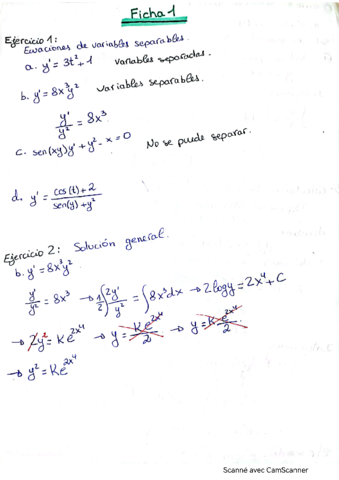 Ficha 1
Ejercicio 1:
Ecuaciones de variables separables.
a. y' = 3t² + 1 variables separadas.
b. y' = 8x³y² variables separables.
y'/y² = 8x³
c. sen(xy)y' + y² - x = 0 No se puede separar.
d. y' = cos(t)+2 / sen(y)+y²
Ejercicio 2: Solución general.
b. y' = 8x³y²
y'/y² = 8x³ → (1/2) 2y'/y² = ∫8x³dx → 2logy = 2x⁴ + C
→ 2y² = Ke^2x⁴ → y = Ke^2x⁴/2 → y = K·e^2x⁴/2
→ y² = Ke^2x⁴
Scanné avec CamScanner